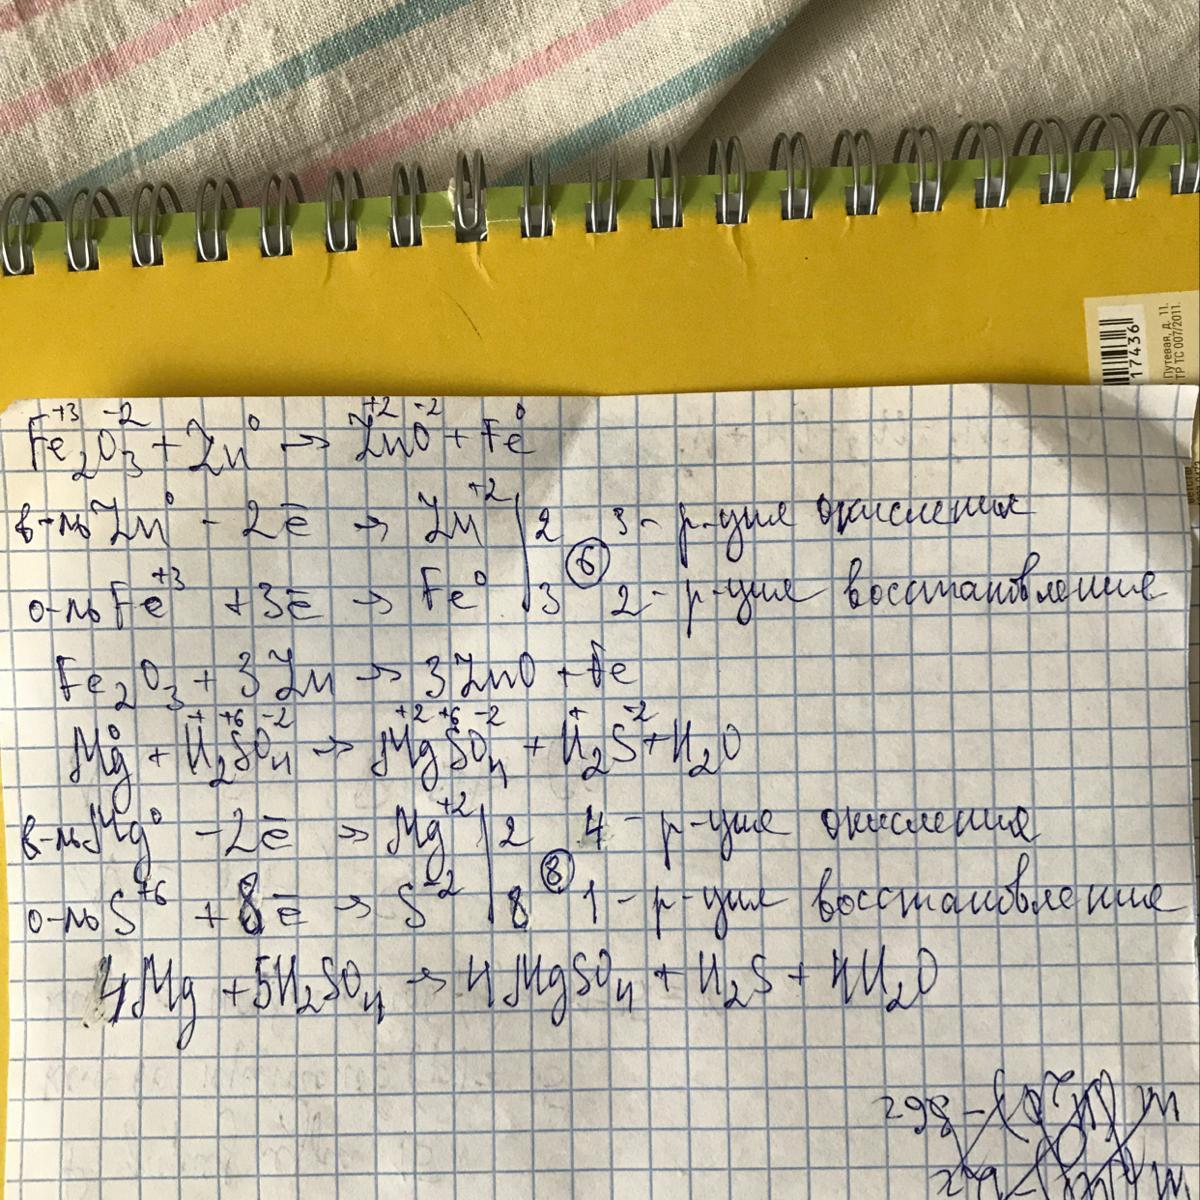 17436
Путевая, д. 11.
ТР ТС 007/2011.
+3 -2 0 +2 -2 0
Fe₂O₃ + Zn → ZnO + Fe
в-ль Zn⁰ - 2ē → Zn⁺² | 2 3 - р-ция окисления
6
о-ль Fe⁺³ + 3ē → Fe⁰ | 3 2 - р-ция восстановления
Fe₂O₃ + 3Zn → 3ZnO + Fe
0 + +6 -2 +2 +6 -2 + -2
Mg + H₂SO₄ → MgSO₄ + H₂S + H₂O
в-ль Mg⁰ - 2ē → Mg⁺² | 2 4 - р-ция окисления
8
о-ль S⁺⁶ + 8ē → S⁻² | 8 1 - р-ция восстановления
4Mg + 5H₂SO₄ → 4MgSO₄ + H₂S + 4H₂O